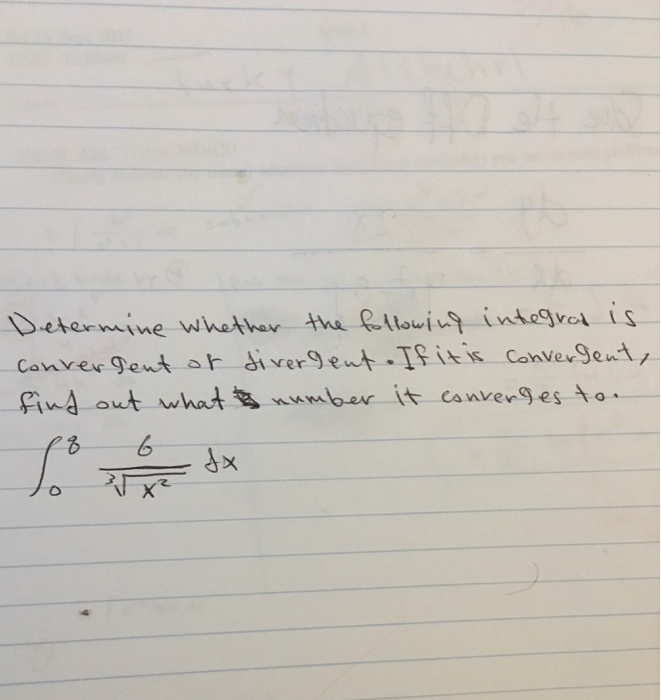 Determine whether the following integral is
convergent or divergent. If it is convergent,
find out what number it converges to.
∫₀⁸ 6/∛x² dx